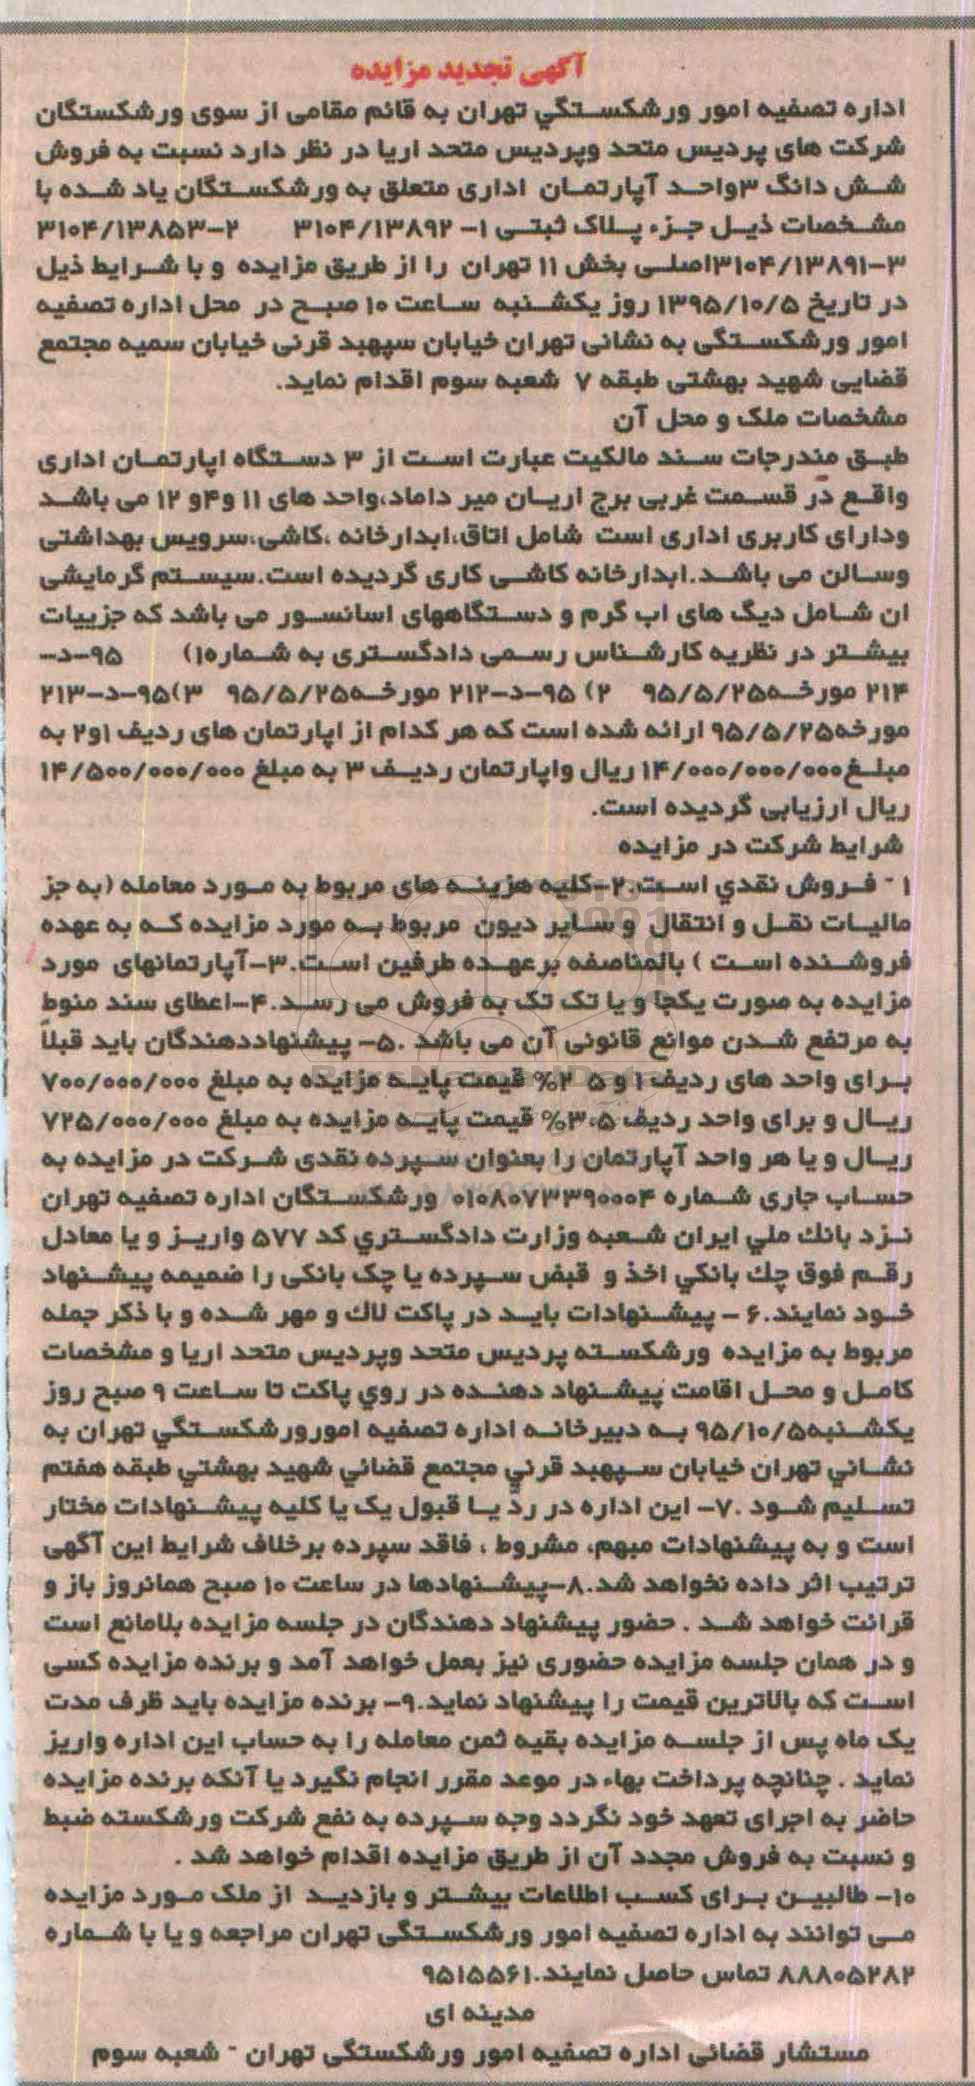 آگهی تجدید مزایده
اداره تصفیه امور ورشکستگي تهران به قائم مقامی از سوی ورشکستگان
شرکت های پردیس متحد وپردیس متحد اریا در نظر دارد نسبت به فروش
شش دانگ ۳واحد آپارتمان اداری متعلق به ورشکستگان یاد شده با
مشخصات ذیل جزء پلاک ثبتی ۱- ۳۱۰۴/۱۳۸۹۲ ۲-۳۱۰۴/۱۳۸۵۳
۳-۳۱۰۴/۱۳۸۹۱اصلی بخش ۱۱ تهران را از طریق مزایده و با شرایط ذیل
در تاریخ ۱۳۹۵/۱۰/۵ روز یکشنبه ساعت ۱۰ صبح در محل اداره تصفیه
امور ورشکستگی به نشانی تهران خیابان سپهبد قرنی خیابان سمیه مجتمع
قضایی شهید بهشتی طبقه ۷ شعبه سوم اقدام نماید.
مشخصات ملک و محل آن
طبق مندرجات سند مالکیت عبارت است از ۳ دستگاه اپارتمان اداری
واقع در قسمت غربی برج اریان میر داماد،واحد های ۱۱ و۴و ۱۲ می باشد
ودارای کاربری اداری است شامل اتاق،ابدارخانه ،کاشی،سرویس بهداشتی
وسالن می باشد.ابدارخانه کاشی کاری گردیده است.سیستم گرمایشی
ان شامل دیگ های اب گرم و دستگاههای اسانسور می باشد که جزییات
بیشتر در نظریه کارشناس رسمی دادگستری به شماره۱) ۹۵-د-
۲۱۴ مورخه۹۵/۵/۲۵ ۲) ۹۵-د-۲۱۲ مورخه۹۵/۵/۲۵ ۳)۹۵-د-۲۱۳
مورخه۹۵/۵/۲۵ ارائه شده است که هر کدام از اپارتمان های ردیف ۱و۲ به
مبلغ۱۴/۰۰۰/۰۰۰/۰۰۰ ریال واپارتمان ردیف ۳ به مبلغ ۱۴/۵۰۰/۰۰۰/۰۰۰
ریال ارزیابی گردیده است.
شرایط شرکت در مزایده
۱ - فروش نقدي است.۲-کلیه هزینه های مربوط به مورد معامله (به جز
مالیات نقل و انتقال و سایر دیون مربوط به مورد مزایده که به عهده
فروشنده است ) بالمناصفه برعهده طرفین است.۳-آپارتمانهای مورد
مزایده به صورت یکجا و یا تک تک به فروش می رسد.۴-اعطای سند منوط
به مرتفع شدن موانع قانونی آن می باشد .۵- پیشنهاددهندگان باید قبلاً
برای واحد های ردیف ۱ و ۲ ۵% قیمت پایه مزایده به مبلغ ۷۰۰/۰۰۰/۰۰۰
ریال و برای واحد ردیف ۳،۵% قیمت پایه مزایده به مبلغ ۷۲۵/۰۰۰/۰۰۰
ریال و یا هر واحد آپارتمان را بعنوان سپرده نقدی شرکت در مزایده به
حساب جاری شماره ۰۱۰۸۰۷۳۳۹۰۰۰۴ ورشکستگان اداره تصفیه تهران
نزد بانك ملي ایران شعبه وزارت دادگستري کد ۵۷۷ واریز و یا معادل
رقم فوق چك بانکي اخذ و قبض سپرده یا چک بانکی را ضمیمه پیشنهاد
خود نمایند.۶ - پیشنهادات باید در پاکت لاك و مهر شده و با ذکر جمله
مربوط به مزایده ورشکسته پردیس متحد وپردیس متحد اریا و مشخصات
کامل و محل اقامت پیشنهاد دهنده در روي پاکت تا ساعت ۹ صبح روز
یکشنبه۹۵/۱۰/۵ به دبیرخانه اداره تصفیه امورورشکستگي تهران به
نشاني تهران خیابان سپهبد قرني مجتمع قضائي شهید بهشتي طبقه هفتم
تسلیم شود .۷- این اداره در ردّ یا قبول یک یا کلیه پیشنهادات مختار
است و به پیشنهادات مبهم، مشروط ، فاقد سپرده برخلاف شرایط این آگهی
ترتیب اثر داده نخواهد شد.۸-پیشنهادها در ساعت ۱۰ صبح همانروز باز و
قرائت خواهد شد . حضور پیشنهاد دهندگان در جلسه مزایده بلامانع است
و در همان جلسه مزایده حضوری نیز بعمل خواهد آمد و برنده مزایده کسی
است که بالاترین قیمت را پیشنهاد نماید.۹- برنده مزایده باید ظرف مدت
یک ماه پس از جلسه مزایده بقیه ثمن معامله را به حساب این اداره واریز
نماید . چنانچه پرداخت بهاء در موعد مقرر انجام نگیرد یا آنکه برنده مزایده
حاضر به اجرای تعهد خود نگردد وجه سپرده به نفع شرکت ورشکسته ضبط
و نسبت به فروش مجدد آن از طریق مزایده اقدام خواهد شد .
۱۰- طالبین برای کسب اطلاعات بیشتر و بازدید از ملک مورد مزایده
می توانند به اداره تصفیه امور ورشکستگی تهران مراجعه و یا با شماره
۸۸۸۰۵۲۸۲ تماس حاصل نمایند.۹۵۱۵۵۶۱
مدینه ای
مستشار قضائی اداره تصفیه امور ورشکستگی تهران - شعبه سوم